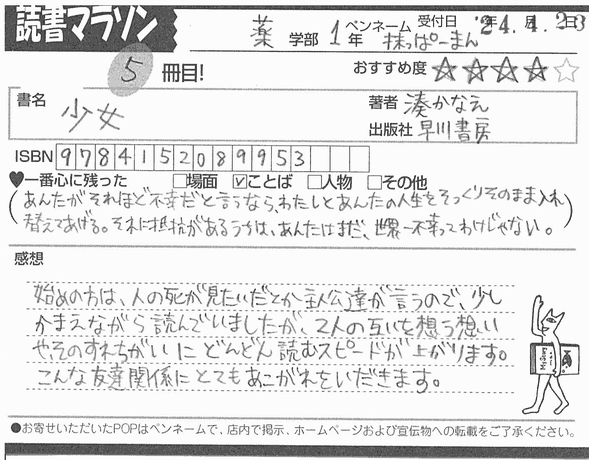 読書マラソン
薬 学部 1年 ペンネーム 抹っぱーまん 受付日 '24.4.23
5 冊目!
おすすめ度 ★★★★☆
書名 少女
著者 湊かなえ
出版社 早川書房
ISBN 9784152089953
♥一番心に残った □場面 ☑ことば □人物 □その他
(あんたがそれほど不幸だと言うなら、わたしとあんたの人生をそっくりそのまま入れ
替えてあげる。それに抵抗があるうちは、あんたはまだ、世界一不幸ってわけじゃない。)
感想
始めの方は、人の死が見たいだとか主人公達が言うので、少し
かまえながら読んでいましたが、2人の互いを想う想い
や、そのすれちがいにどんどん読むスピードが上がります。
こんな友達関係にとてもあこがれをいだきます。
●お寄せいただいたPOPはペンネームで、店内で掲示、ホームページおよび宣伝物への転載をご了承ください。